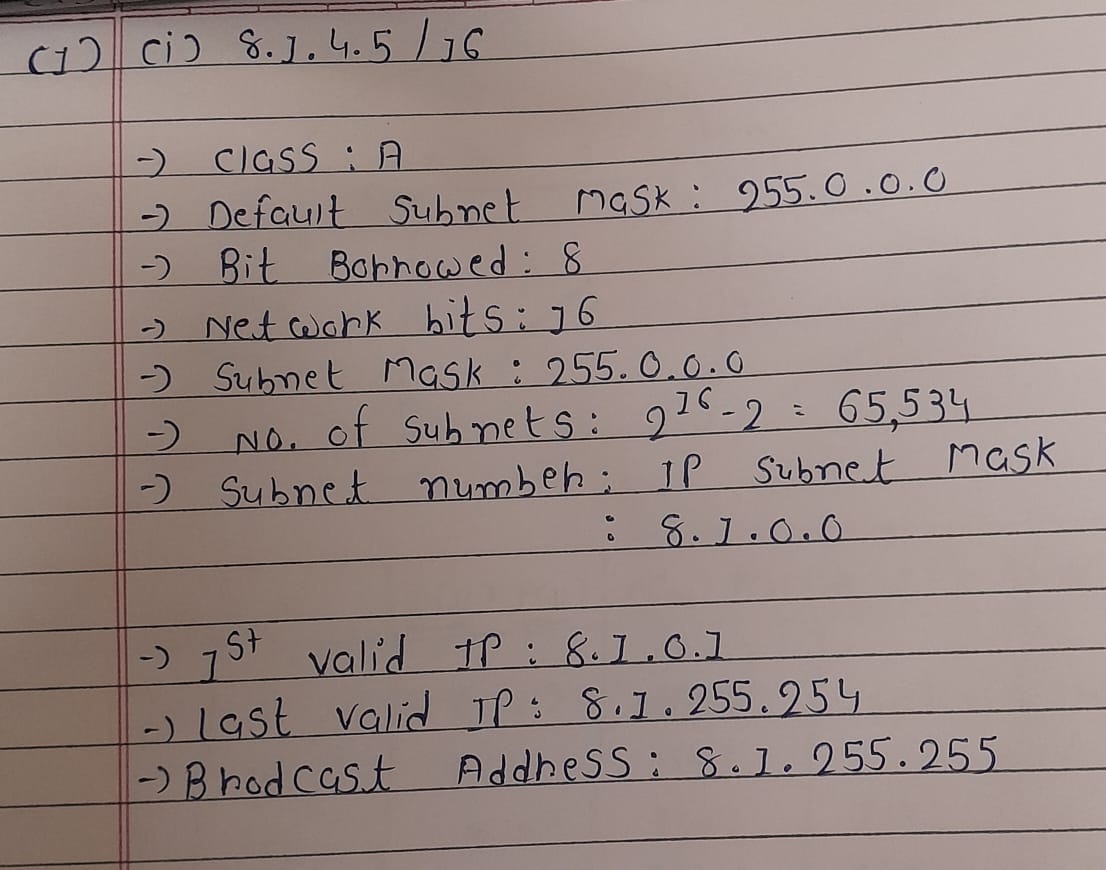 (1) (i) 8.1.4.5 /16
-> Class : A
-> Default Subnet Mask : 255.0.0.0
-> Bit Borrowed : 8
-> Network bits : 16
-> Subnet Mask : 255.0.0.0
-> No. of Subnets : 2^16 - 2 = 65,534
-> Subnet number : IP Subnet Mask
: 8.1.0.0
-> 1st valid IP : 8.1.0.1
-> Last valid IP : 8.1.255.254
-> Brodcast Address : 8.1.255.255